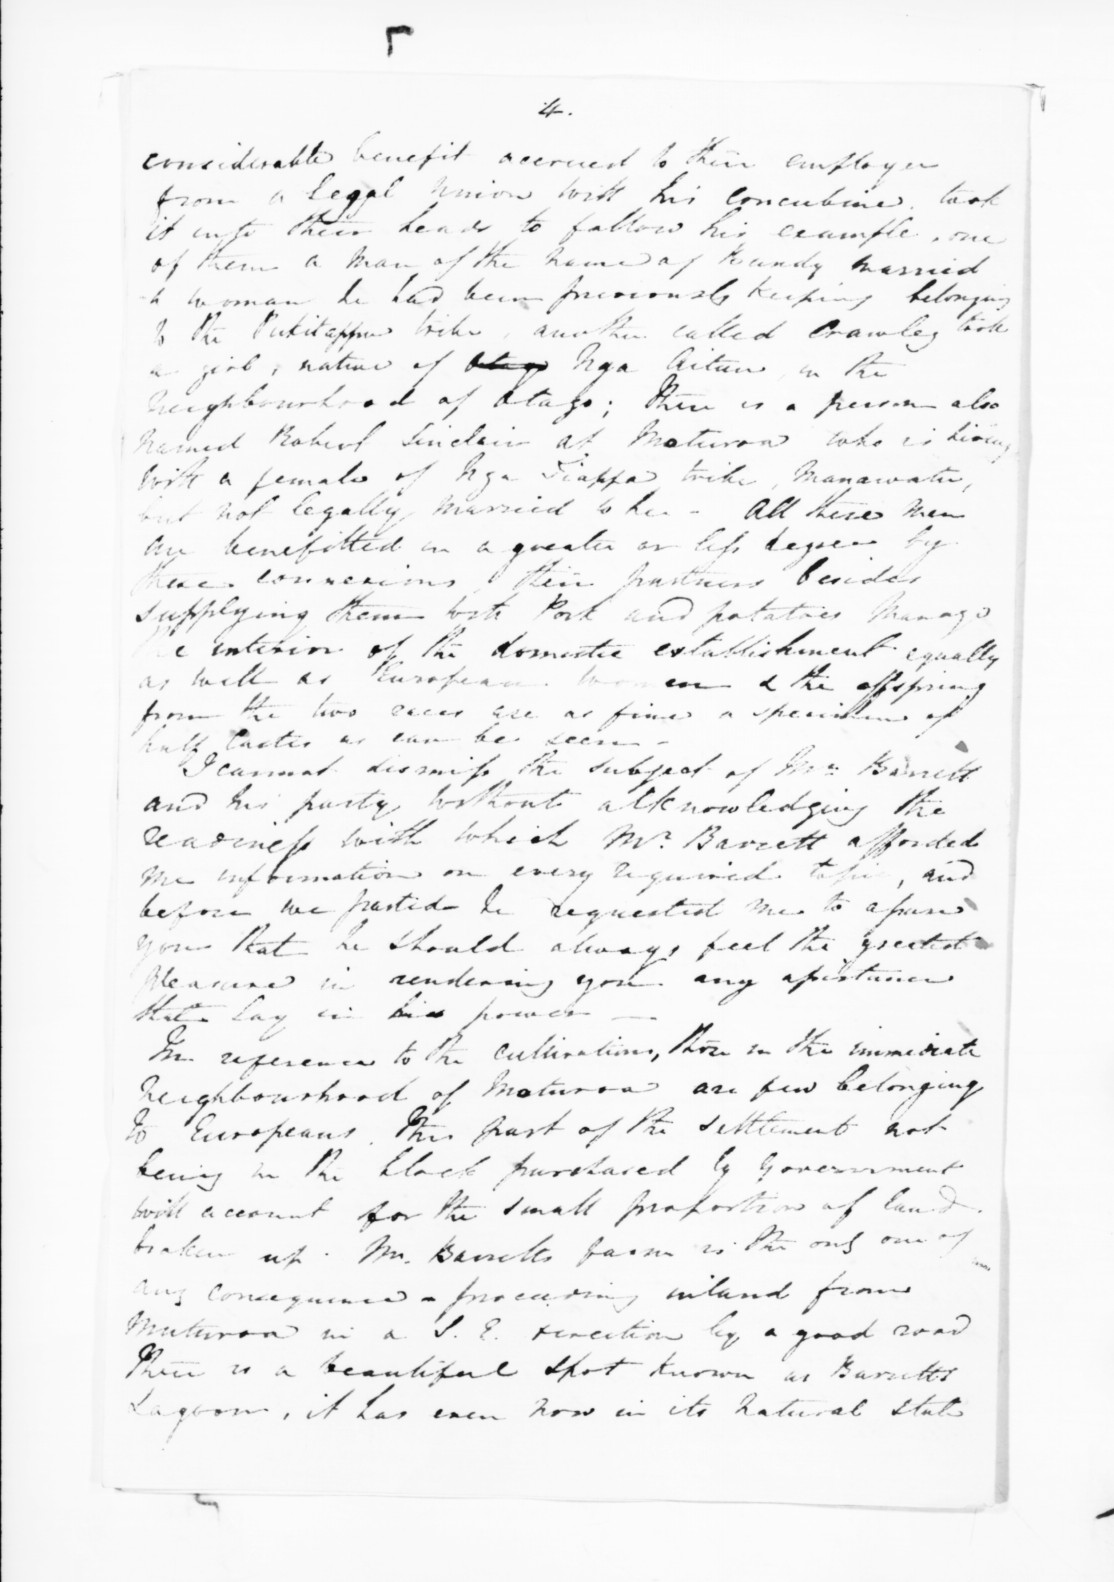 4.
considerable benefit accrued to their employer
from a legal union with his concubine, took
it into their heads to follow his example, one
of them a man of the name of Bundy married
a woman he had been previously keeping belonging
to the Pukitappu tribe, another called Crawley took
a girl, native of Otago Nga Aitun in the
neighbourhood of Otago; there is a person also
named Robert Sinclair at Moturoa who is living
with a female of Nga Tiappa tribe, Manawatu,
but not legally married to her - All these men
are benefitted in a greater or less degree by
these connexions, their partners besides
supplying them with Pork and potatoes manage
the interior of the domestic establishment equally
as well as European women & the offspring
from the two races are as fine a specimen of
half castes as can be seen -
I cannot dismiss the subject of Mr. Barrett
and his party without acknowledging the
readiness with which Mr. Barrett afforded
me information on every required topic, and
before we parted he requested me to assure
you that he should always feel the greatest
pleasure in rendering you any assistance
that lay in his power —
In reference to the cultivations, those in the immediate
neighbourhood of Moturoa are few belonging
to Europeans. This part of the settlement not
being in the block purchased by Government
will account for the small proportion of land
broken up. Mr. Barretts farm is the only one of
any consequence - proceeding inland from
Muturoa in a S. E. direction by a good road
there is a beautiful spot known as Barretts
Lagoon, it has even now in its natural state